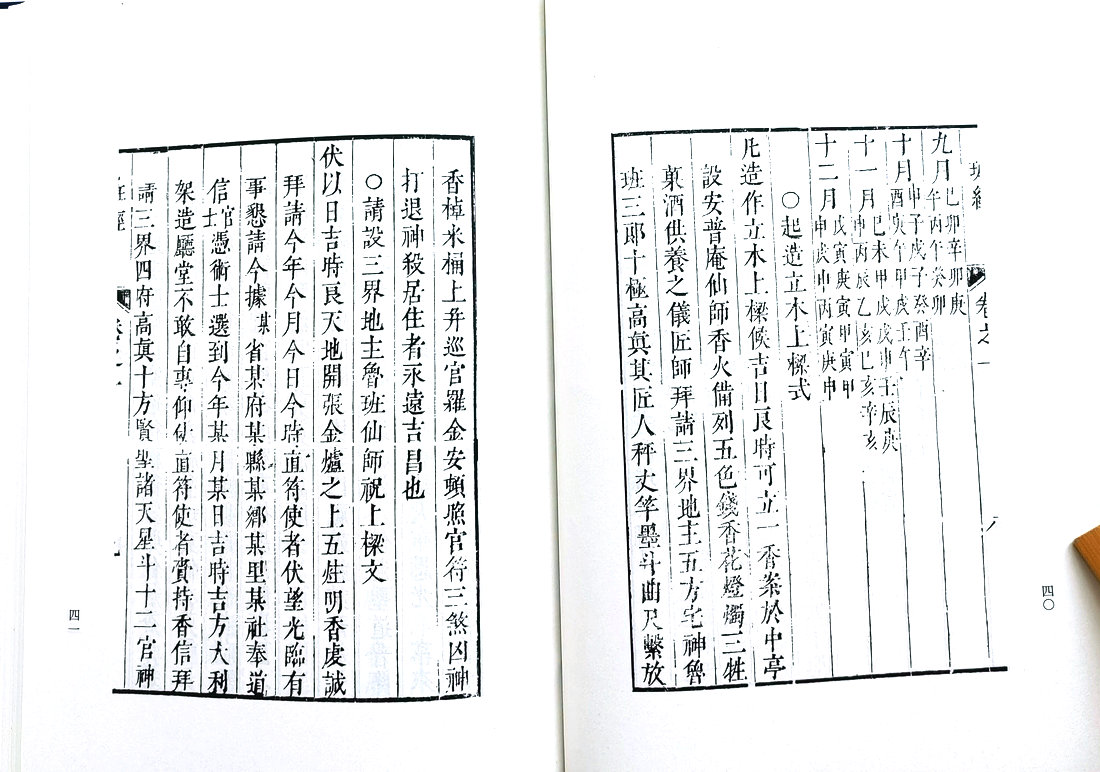 班經
卷之一
八
九月 己卯辛卯庚
午丙午癸卯
十月 甲子戊子癸酉辛
酉庚午甲戌壬午
十一月 己未甲戌戊申壬辰庚
申丙辰乙亥己亥辛亥
十二月 戊寅庚寅甲寅甲
申戊申丙寅庚申
○起造立木上樑式
凡造作立木上樑候吉日良時可立一香案於中亭
設安普庵仙師香火備列五色錢香花燈燭三牲
菓酒供養之儀匠師拜請三界地主五方宅神魯
班三郎十極高真其匠人秤丈竿墨斗曲尺繫放
四〇
香棹米桶上并巡官羅金安頓照官符三煞凶神
打退神殺居住者永遠吉昌也
○請設三界地主魯班仙師祝上樑文
伏以日吉時良天地開張金爐之上五炷明香虔誠
拜請今年今月今日今時直符使者伏望光臨有
事懇請今據某省某府某縣某鄉某里某社奉道
信士官憑術士選到今年某月某日吉時吉方大利
架造廳堂不敢自專仰仗直符使者賫持香信拜
請三界四府高真十方賢聖諸天星斗十二宮神
班經
卷之一
九
四一